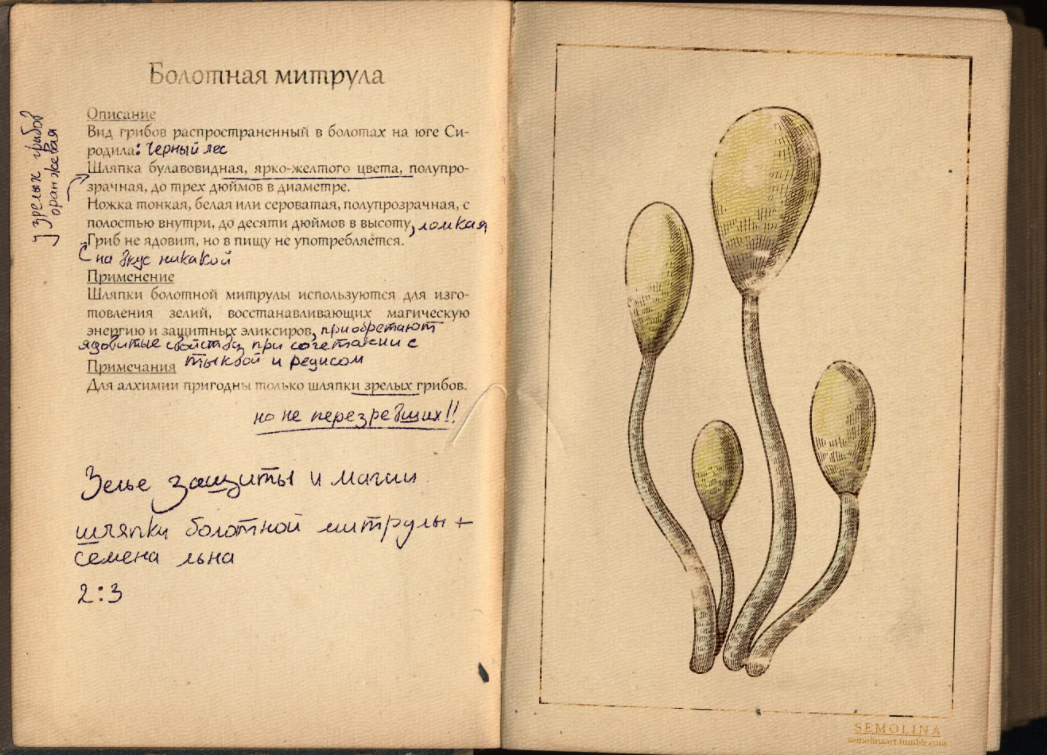 Болотная митрула
Описание
Вид грибов распространенный в болотах на юге Си-
родила: Черный лес
Шляпка булавовидная, ярко-желтого цвета, полупро-
зрачная, до трех дюймов в диаметре.
у зрелых грибов
оранжевая
Ножка тонкая, белая или сероватая, полупрозрачная, с
полостью внутри, до десяти дюймов в высоту, ломкая
Гриб не ядовит, но в пищу не употребляется.
на вкус никакой
Применение
Шляпки болотной митрулы используются для изго-
товления зелий, восстанавливающих магическую
энергию и защитных эликсиров, приобретают
ядовитые свойства при сочетании с
тыквой и редисом
Примечания
Для алхимии пригодны только шляпки зрелых грибов.
но не перезревших!!
Зелье защиты и магии
шляпки болотной митрулы +
семена льна
2:3
SEMOLINA
semolinaart.tumblr.com